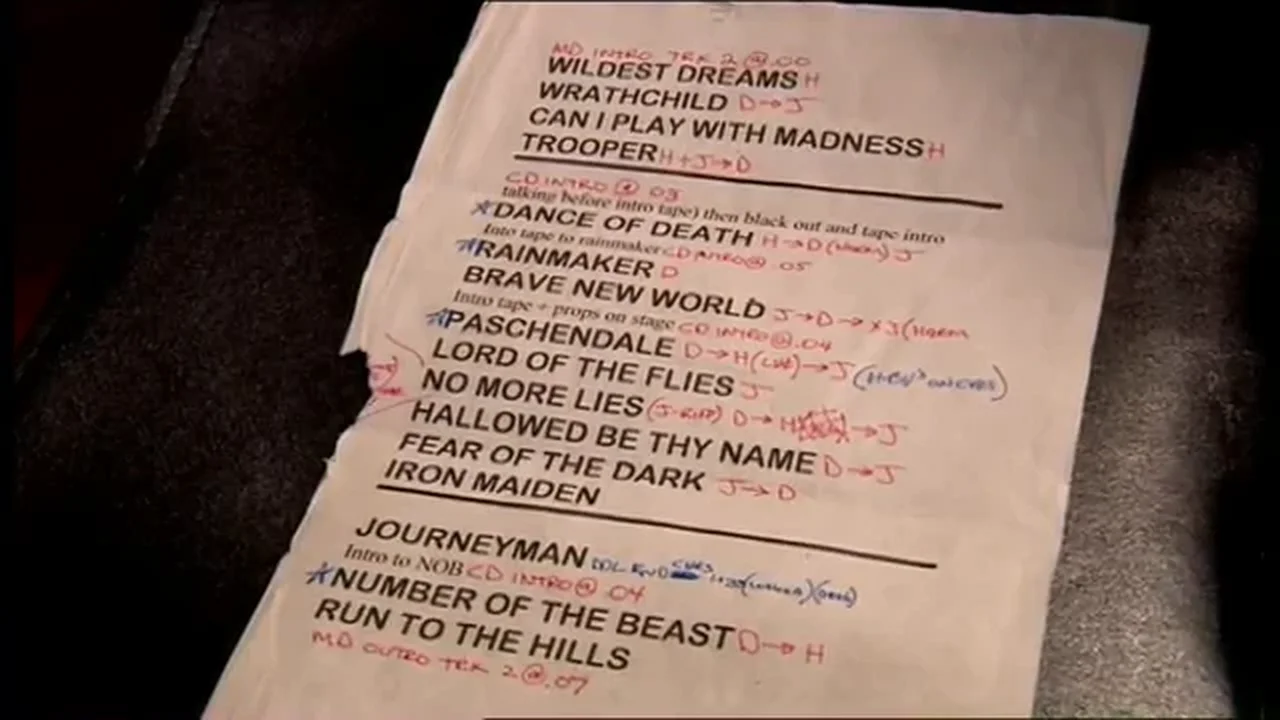 MD INTRO TRK 2 @.00
WILDEST DREAMS H
WRATHCHILD D→J
CAN I PLAY WITH MADNESS H
TROOPER H+J→D
CD INTRO @ 03
talking before intro tape) then black out and tape intro
☆DANCE OF DEATH H→D(HARM) J
Into tape to rainmaker CD INTRO@ .05
☆RAINMAKER D
BRAVE NEW WORLD J→D→xJ(HARM
Intro tape + props on stage CD INTRO@.04
☆PASCHENDALE D→H(LIVE)→J
LORD OF THE FLIES J
NO MORE LIES (J-RIFF) D→H →J
HALLOWED BE THY NAME D→J
FEAR OF THE DARK J→D
IRON MAIDEN
JOURNEYMAN
Intro to NOB CD INTRO@ .04
☆NUMBER OF THE BEAST D→H
RUN TO THE HILLS
MD OUTRO TRK 2 @.07